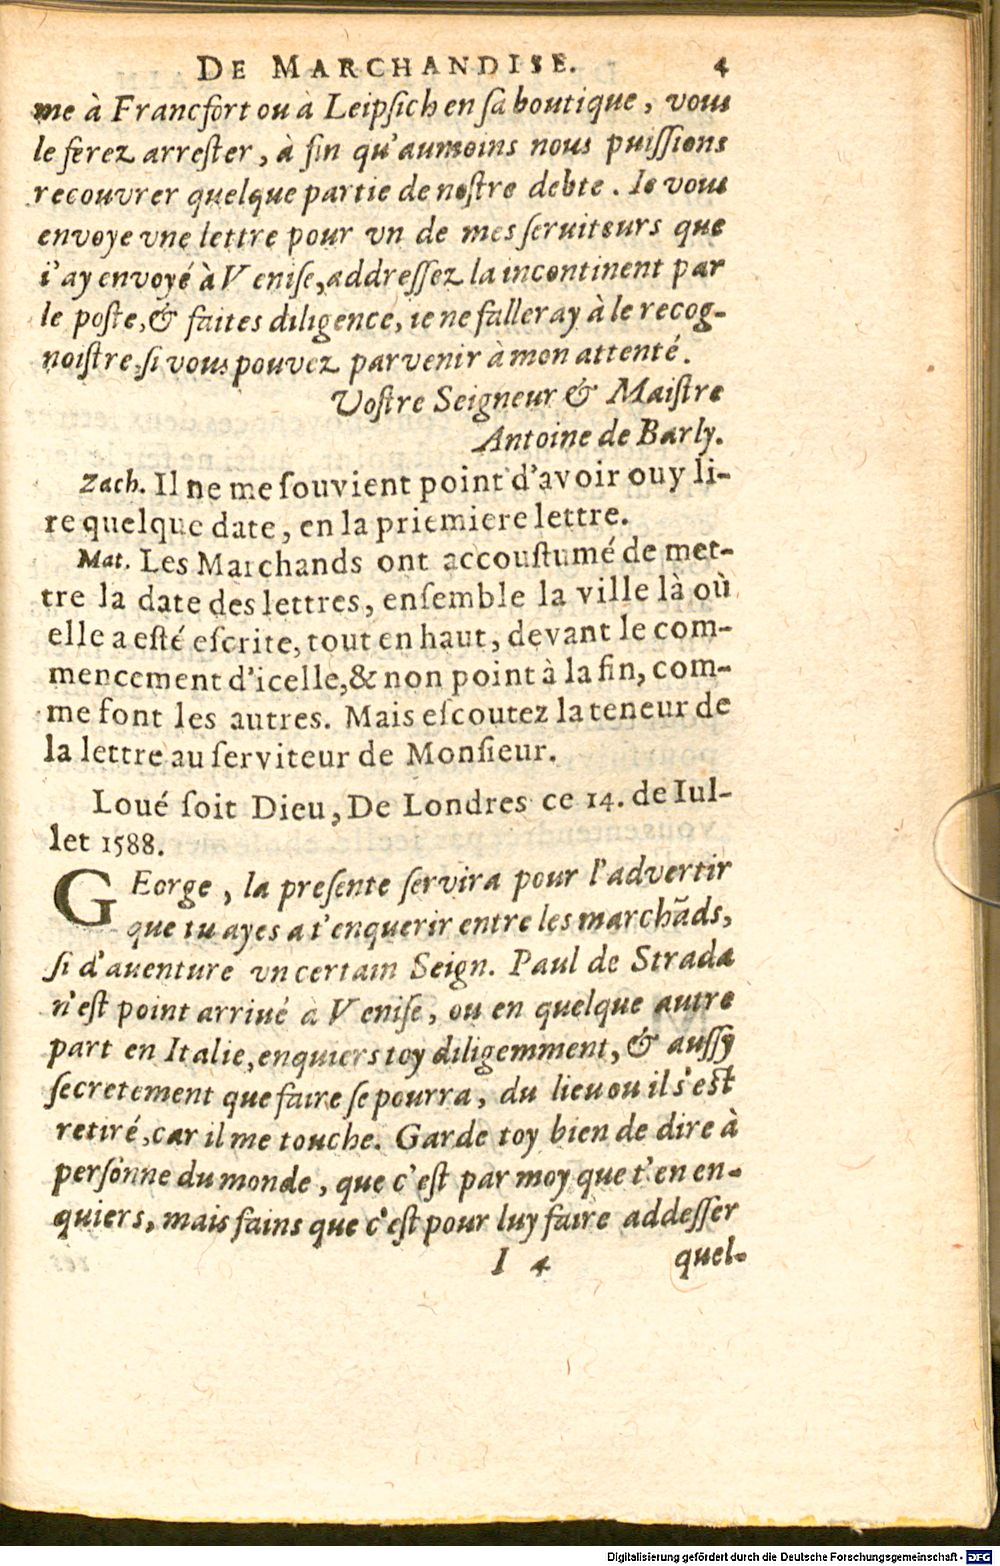 DE MARCHANDISE. 4
me à Francfort ou à Leipſich en ſa boutique, vous
le ferez arreſter, à fin qu'aumoins nous puiſſions
recouvrer quelque partie de noſtre debte. Ie vous
envoye vne lettre pour vn de mes ſeruiteurs que
i'ay envoyé à Veniſe, addreſſez la incontinent par
le poſte, & faites diligence, ie ne falleray à le recog-
noiſtre, ſi vous pouvez parvenir à mon attenté.
Voſtre Seigneur & Maiſtre
Antoine de Barly.
Zach. Il ne me ſouvient point d'avoir ouy li-
re quelque date, en la priemiere lettre.
Mat. Les Marchands ont accouſtumé de met-
tre la date des lettres, enſemble la ville là où
elle a eſté eſcrite, tout en haut, devant le com-
mencement d'icelle, & non point à la fin, com-
me font les autres. Mais eſcoutez la teneur de
la lettre au ſerviteur de Monſieur.
Loué ſoit Dieu, De Londres ce 14. de Iul-
let 1588.
GEorge, la preſente ſervira pour l'advertir
que tu ayes a t'enquerir entre les marchãds,
ſi d'auenture vn certain Seign. Paul de Strada
n'eſt point arriué à Veniſe, ou en quelque autre
part en Italie, enquiers toy diligemment, & auſſy
ſecretement que faire ſe pourra, du lieu ou il s'eſt
retiré, car il me touche. Garde toy bien de dire à
perſonne du monde, que c'eſt par moy que t'en en-
quiers, mais fains que c'eſt pour luy faire addeſſer
I 4 quel-
Digitalisierung gefördert durch die Deutsche Forschungsgemeinschaft - DFG